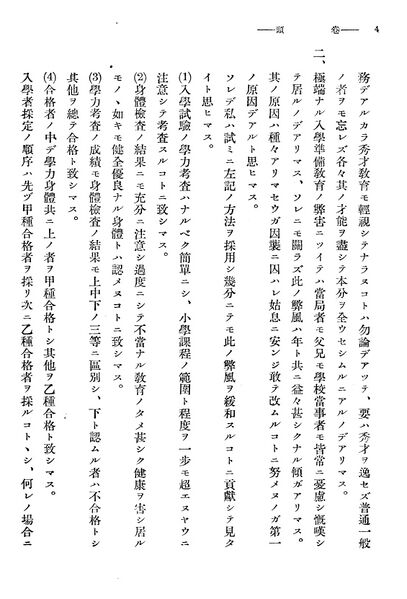 4 ――卷頭――
務デアルカラ秀才敎育モ輕視シテナラヌコトハ勿論デアツテ、要ハ秀才ヲ逸セズ普通一般
ノ者ヲモ忘レズ各々其ノ才能ヲ盡シテ本分ヲ全ウセシムルニアルノデアリマス。
二、極端ナル入學準備敎育ノ弊害ニツイテハ當局者モ父兄モ學校當事者モ皆常ニ憂慮シ慨嘆シ
テ居ルノデアリマス、ソレニモ關ラズ此ノ弊風ハ年ト共ニ益々甚シクナル傾ガアリマス。
其ノ原因ハ種々アリマセウガ因襲ニ囚ハレ姑息ニ安ンジ敢テ改ムルコトニ努メヌノガ第一
ノ原因デアルト思ヒマス。
ソレデ私ハ試ミニ左記ノ方法ヲ採用シ幾分ニテモ此ノ弊風ヲ緩和スルコトニ貢獻シテ見タ
イト思ヒマス。
(1)入學試驗ノ學力考査ハナルベク簡單ニシ、小學課程ノ範圍ト程度ヲ一步モ超エヌヤウニ
注意シテ考査スルコトニ致シマス。
(2)身體檢査ノ結果ニモ充分ニ注意シ過度ニシテ不當ナル敎育ノタメ甚シク健康ヲ害シ居ル
モノヽ如キモ健全優良ナル身體トハ認メヌコトニ致シマス。
(3)學力考査ノ成績モ身體檢査ノ結果モ上中下ノ三等ニ區別シ、下ト認ムル者ハ不合格トシ
其他ヲ總テ合格ト致シマス。
(4)合格者ノ中デ學力身體共ニ上ノ者ヲ甲種合格トシ其他ヲ乙種合格ト致シマス。
入學者採定ノ順序ハ先ヅ甲種合格者ヲ採リ次ニ乙種合格者ヲ採ルコトヽシ、何レノ場合ニ